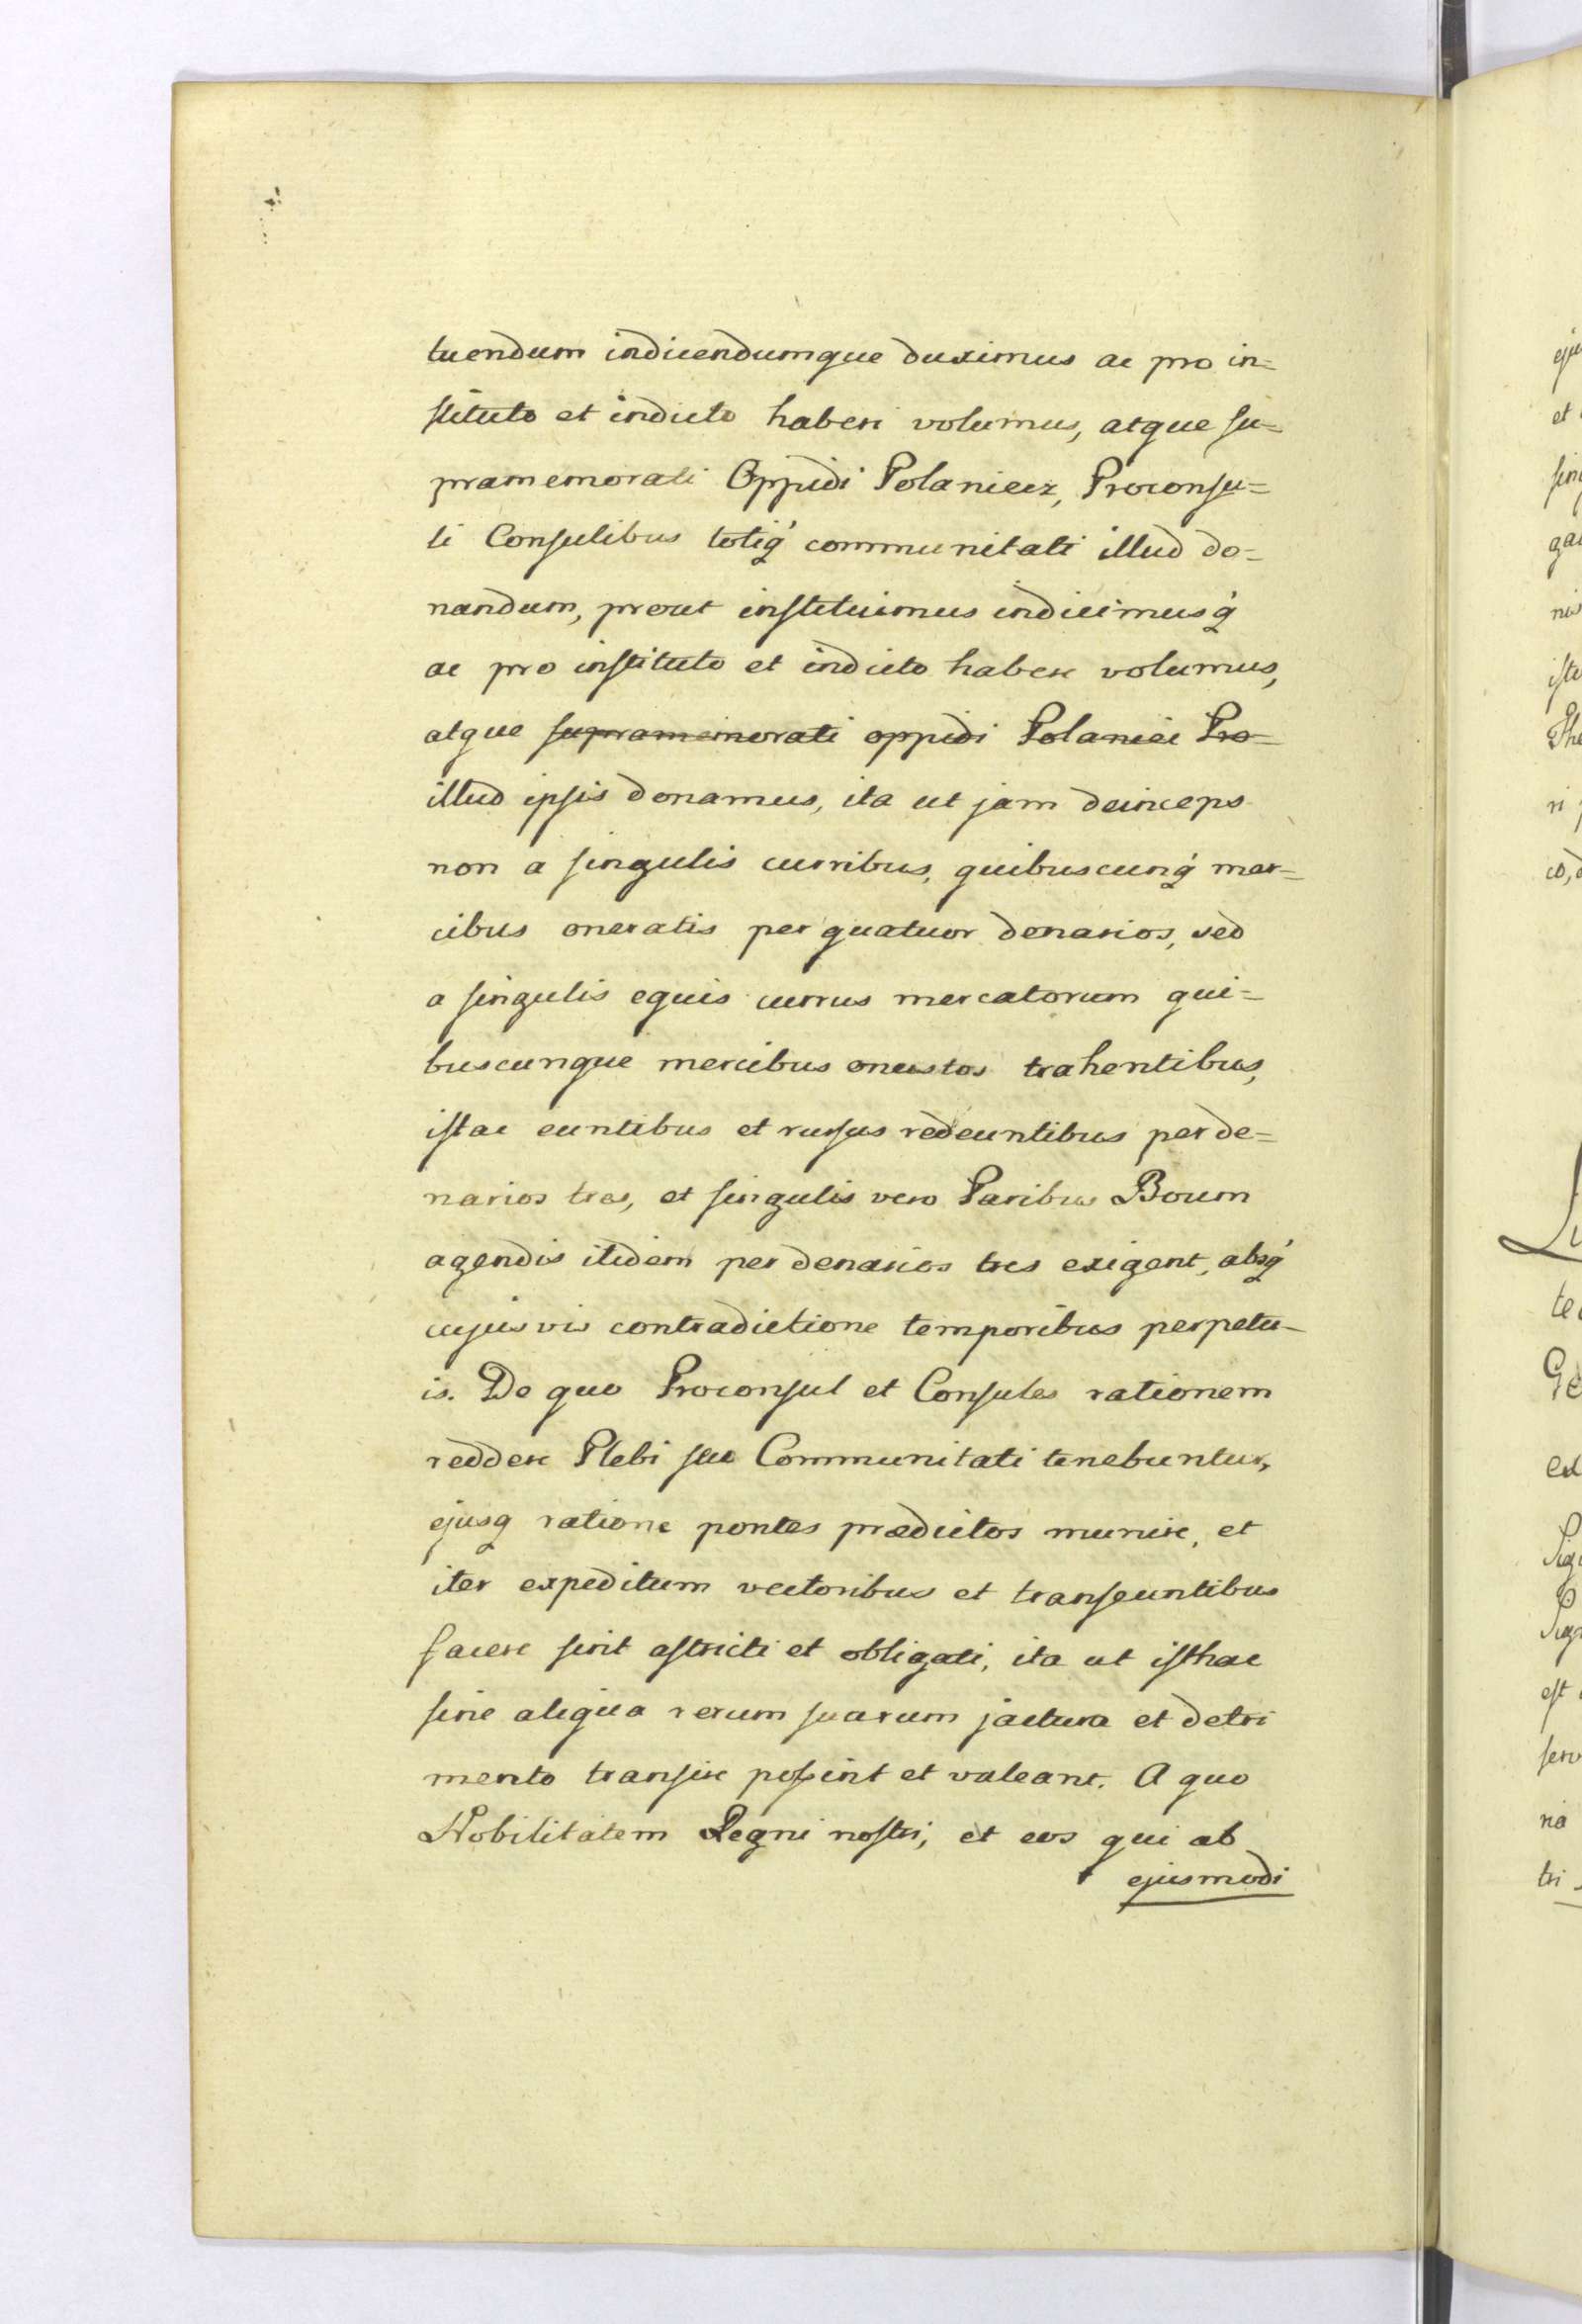 tuendum indicendumque duximus ac pro in=
stituto et indicto haberi volumus, atque su=
pramemorati Oppidi Polaniecz, Proconsu=
li Consulibus totiq́ communitati illud do=
nandum, prout instituimus indicimusq́
ac pro instituto et indicto habere volumus,
atque supramemorati oppidi Polaniec Pro=
illud ipsis donamus, ita ut jam deinceps
non a singulis curribus, quibuscunq́ mer=
cibus oneratis per quatuor denarios, sed
a singulis equis currus mercatorum qui=
buscunque mercibus onustos trahentibus,
istac euntibus et rursus redeuntibus per de=
narios tres, et singulis vero Paribus Boum
agendis itidem per denarios tres exigent, absq́
cujusvis contradictione temporibus perpetu-
is. De quo Proconsul et Consules rationem
reddere Plebi seu Communitati tenebuntur,
ejusq ratione pontes prædictos munire, et
iter expeditum vectoribus et transeuntibus
facere sint astricti et obligati, ita ut isthac
sine aliqua rerum suarum jactura et detri
mento transire possint et valeant. A quo
Nobilitatem Regni nostri, et eos qui ab
ejusmodi